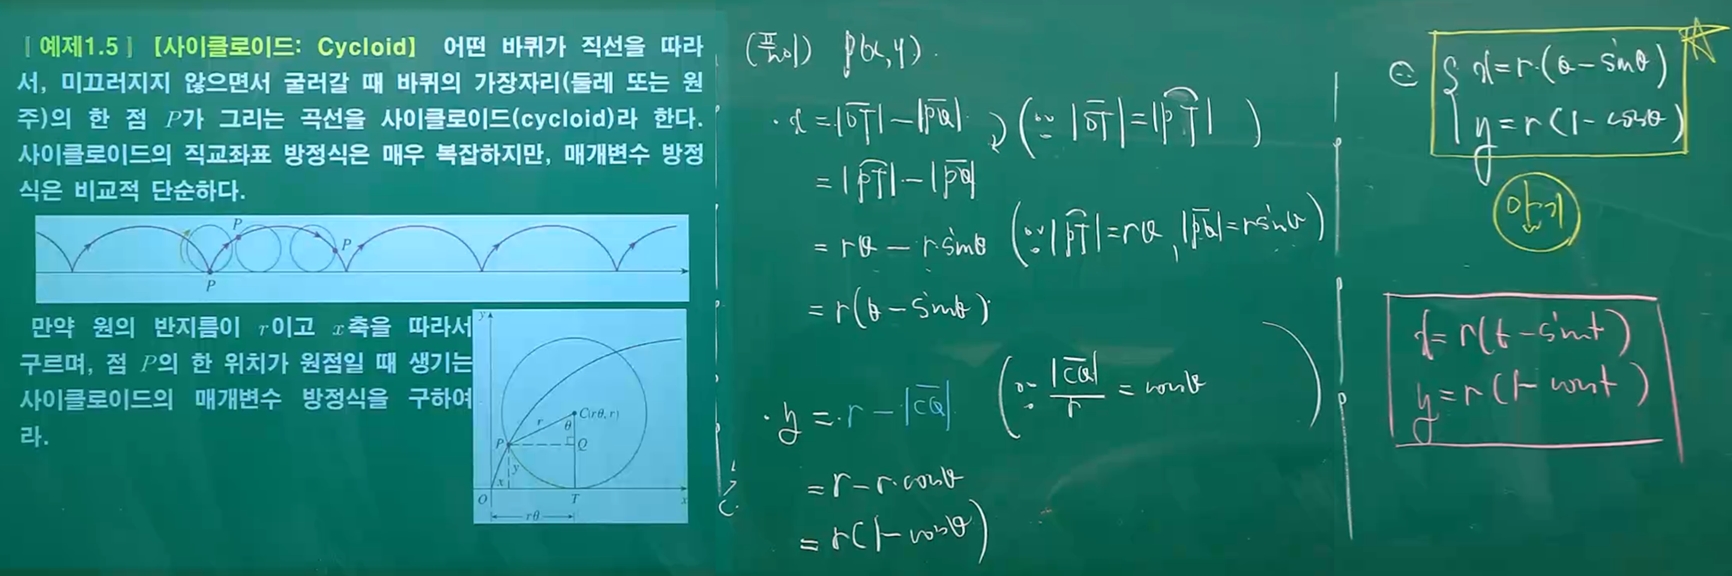 [예제1.5] [사이클로이드: Cycloid] 어떤 바퀴가 직선을 따라
서, 미끄러지지 않으면서 굴러갈 때 바퀴의 가장자리(둘레 또는 원
주)의 한 점 P가 그리는 곡선을 사이클로이드(cycloid)라 한다.
사이클로이드의 직교좌표 방정식은 매우 복잡하지만, 매개변수 방정
식은 비교적 단순하다.
P
P
P
만약 원의 반지름이 r이고 x축을 따라서
구르며, 점 P의 한 위치가 원점일 때 생기는
사이클로이드의 매개변수 방정식을 구하여
라.
y
r
C(rθ, r)
θ
P
Q
y
x
O
T
x
rθ
(풀이) P(x,y).
· x = |OT| - |PQ| (∵ |OT| = |PT|)
= |PT| - |PQ|
= rθ - r sinθ (∵ |PT| = rθ, |PQ| = r sinθ)
= r(θ - sinθ)
· y = r - |CQ| (∵ |CQ|/r = cosθ)
= r - r·cosθ
= r(1 - cosθ)
x = r·(θ - sinθ)
y = r(1 - cosθ)
암기
x = r(t - sint)
y = r(1 - cost)